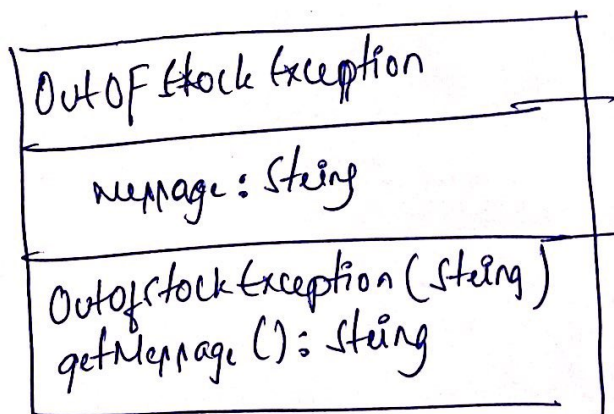 OutOfStockException
message: String
OutofstockException(String)
getMessage(): String